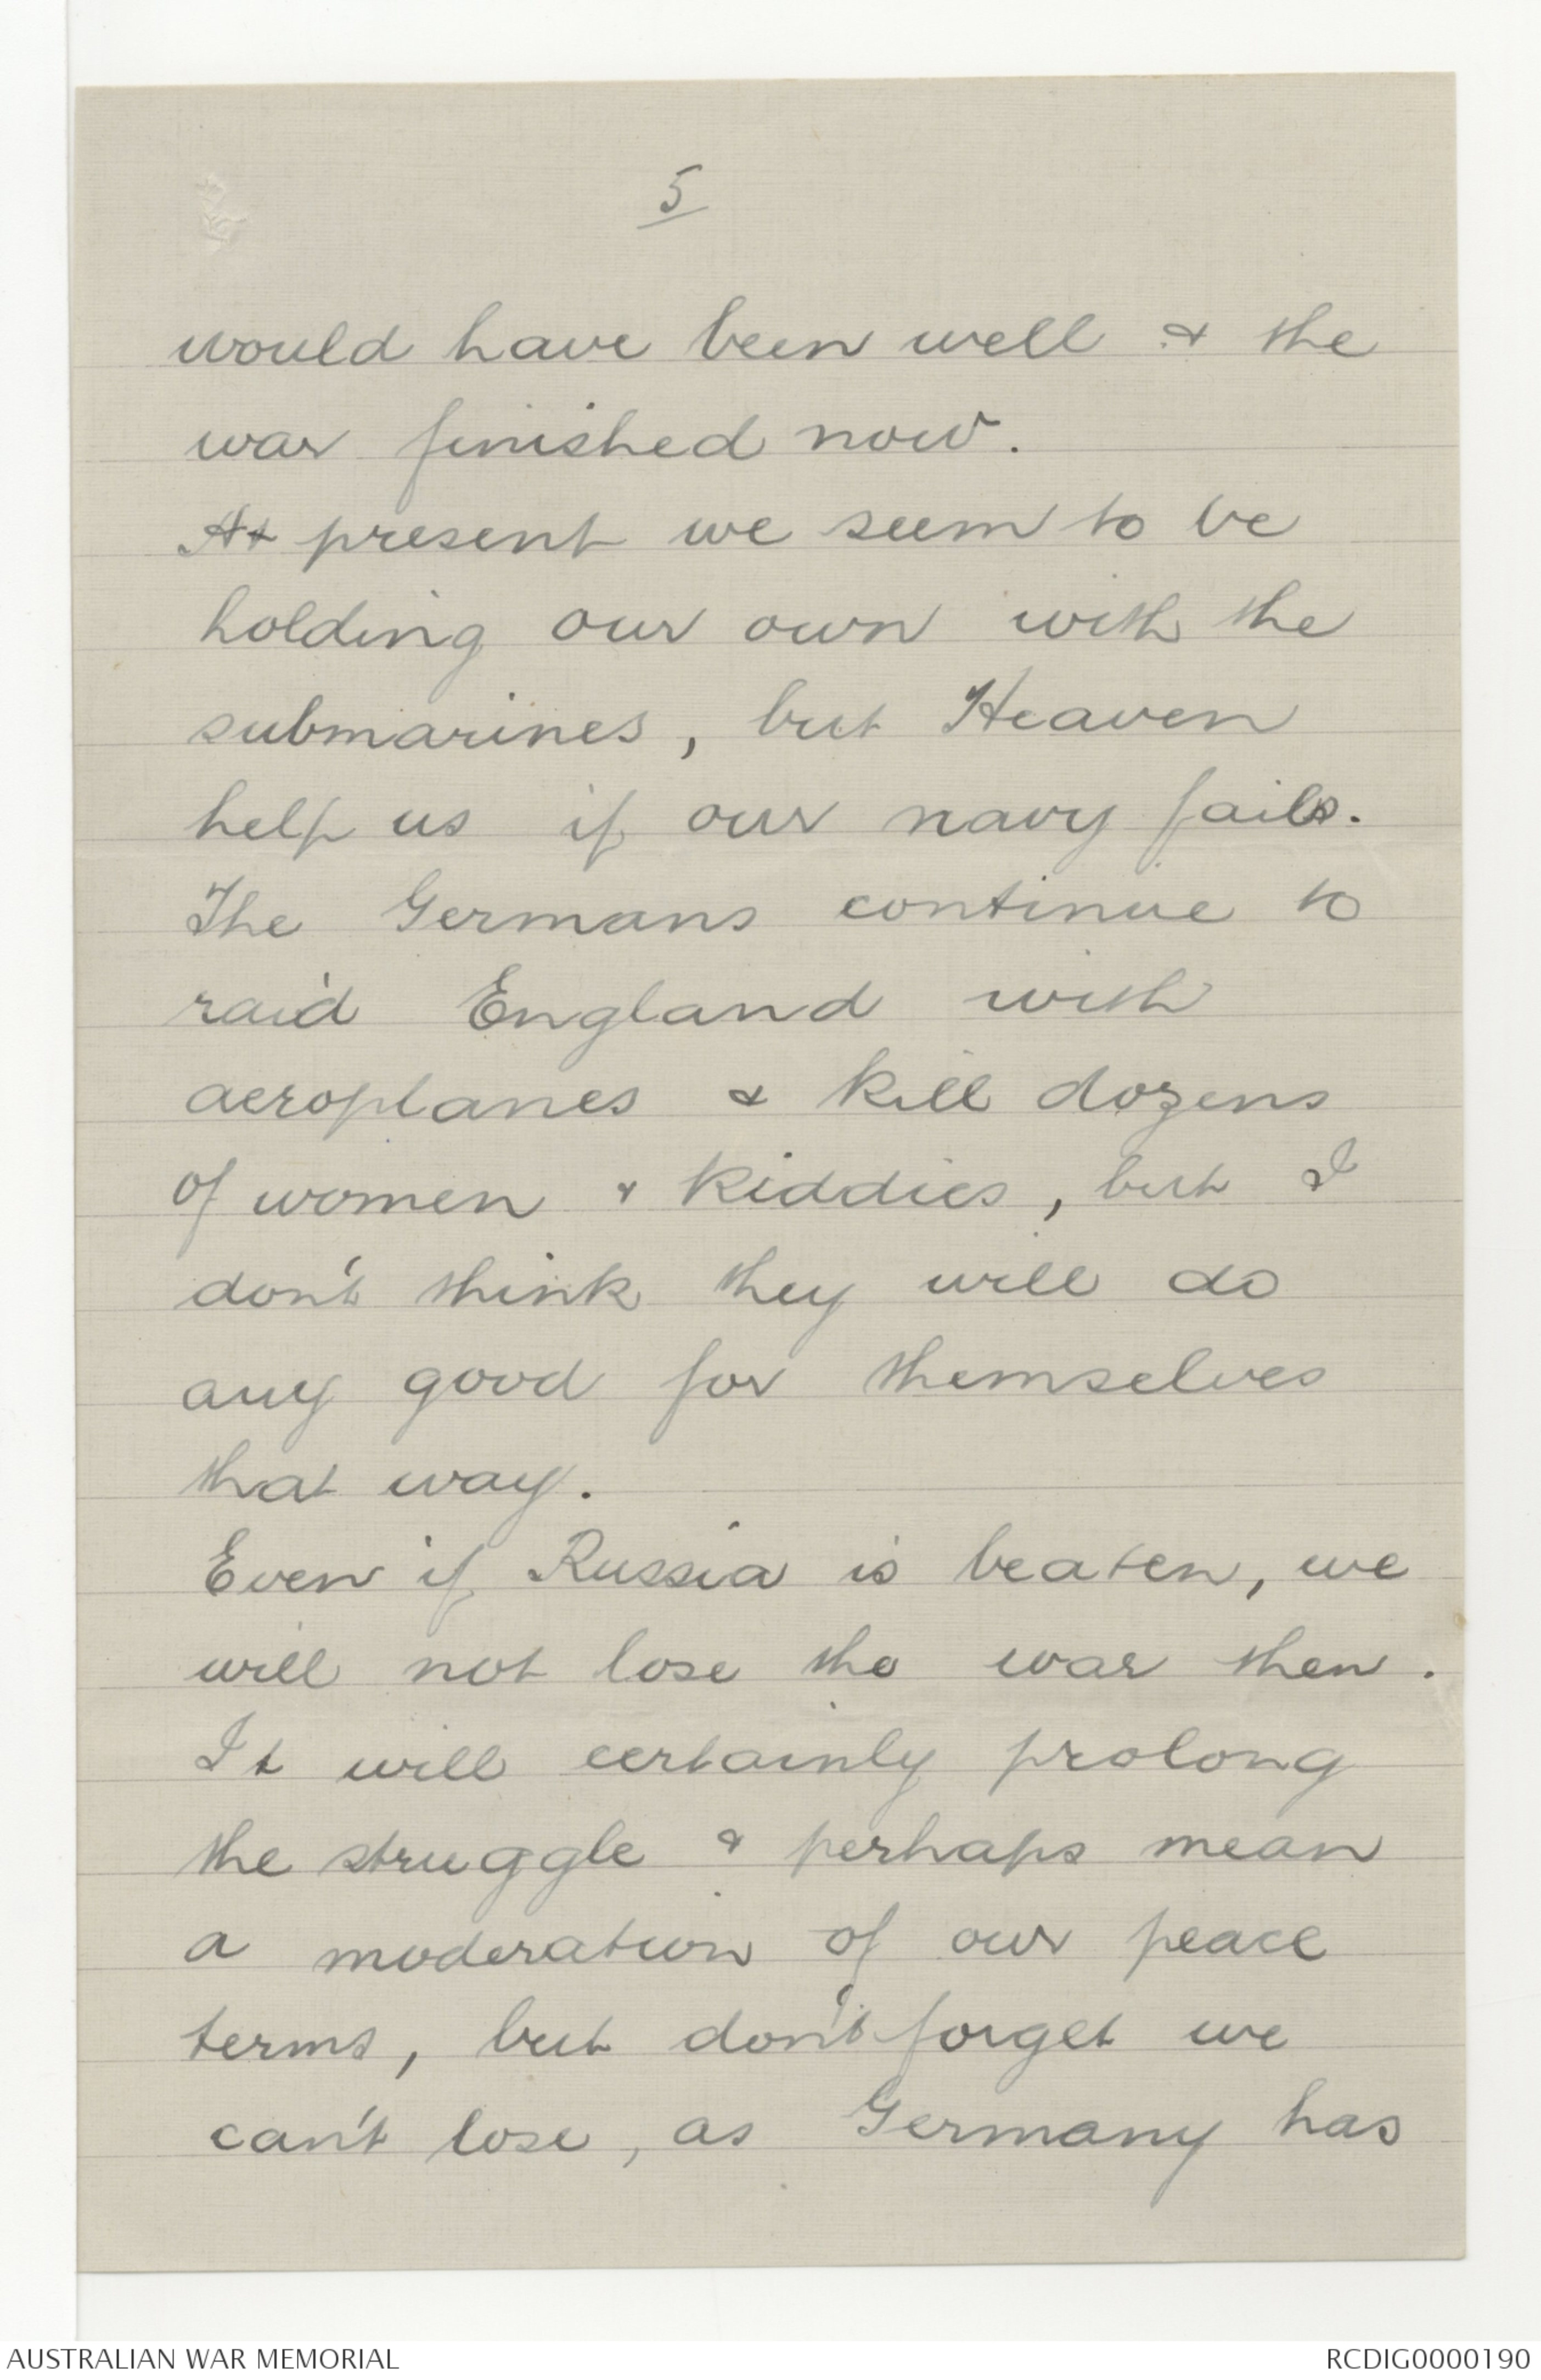 5
would have been well & the
war finished now.
At present we seem to be
holding our own with the
submarines, but Heaven
help us if our navy fails.
The Germans continue to
raid England with
aeroplanes & kill dozens
of women & kiddies, but I
don't think they will do
any good for themselves
that way.
Even if Russia is beaten, we
will not lose the war then.
It will certainly prolong
the struggle & perhaps mean
a moderation of our peace
terms, but don't forget we
can't lose, as Germany has
AUSTRALIAN WAR MEMORIAL
RCDIG0000190